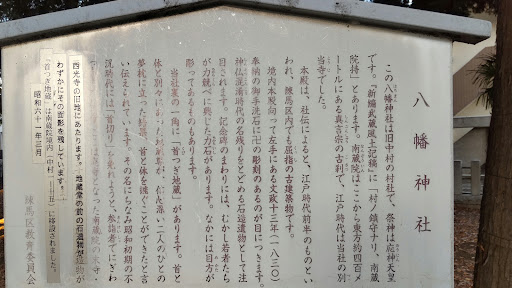 八幡神社
この八幡神社は旧中村の村社で、祭神は応神天皇
です。『新編武蔵風土記稿』に、「村ノ鎮守ナリ、南蔵
院持」とあります。南蔵院はここから東方約四百メ
ートルにある真言宗の古刹で、江戸時代は当社の別
当寺でした。
本殿は、社伝によると、江戸時代前半のものとい
われ、練馬区内でも屈指の古建築物です。
境内本殿向って左手にある文政十三年(一八三〇)
奉納の御手洗石に卍の彫刻のあるのが目につきます。
神仏混淆時代の名残りをとどめる石造遺物として注
目されます。記念碑のまわりには、むかし若者たち
が力競べに興じた力石があります。なかには目方が
彫ってあるものもあります。
当社裏の一角に「首つぎ地蔵」があります。首と
体と別々にあった地蔵尊が、信心深い二人のひとの
夢枕に立った結果、首と体を継ぐことができたと言
い伝えられています。その名にちなみ昭和初期の不
況時代には「首切り」を免れようと、参詣者でにぎわ
西光寺の旧地にあたります。地蔵堂の前の石造物が
わずかにその面影を残しています。
「首つぎ地蔵」は南蔵院境内(中村一)に移設されました。
昭和六十一年三月
練馬区教育委員会